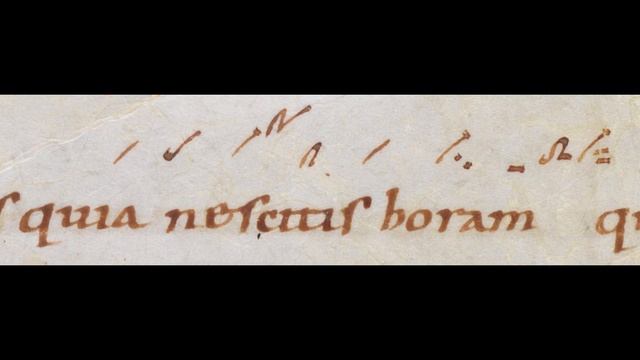 s quia nescitis horam qu